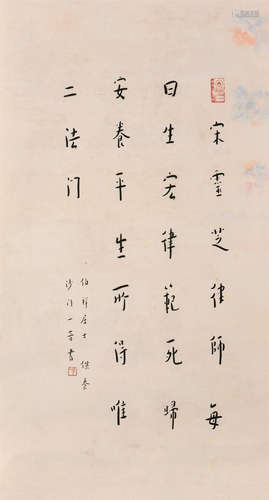 宋靈芝律師每
曰生宏律範死歸
安養平生所得唯
二法门
伯祥居士供養
沙门一音書